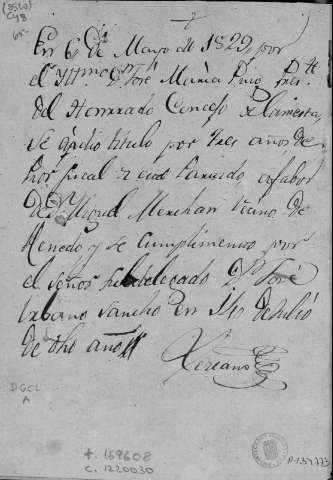 (8520)
C/18
65-
En 6 de Mayo de 1829, por
el Yllmo Sr D. José Maria Puig Presidte
del Honrrado Concejo de la mesta
se aprobo titulo por tres años de
Pror fiscal de este Partido a fabor
de Dn Miguel Merchan Vecino de
Renedo y se Cumplimento por
el señor subdelegado Dn José
Urbano Sancho en 14 de Julio
de dho año
Xerbano
DGCL
A
t. 169608
C. 1220030
P-137773